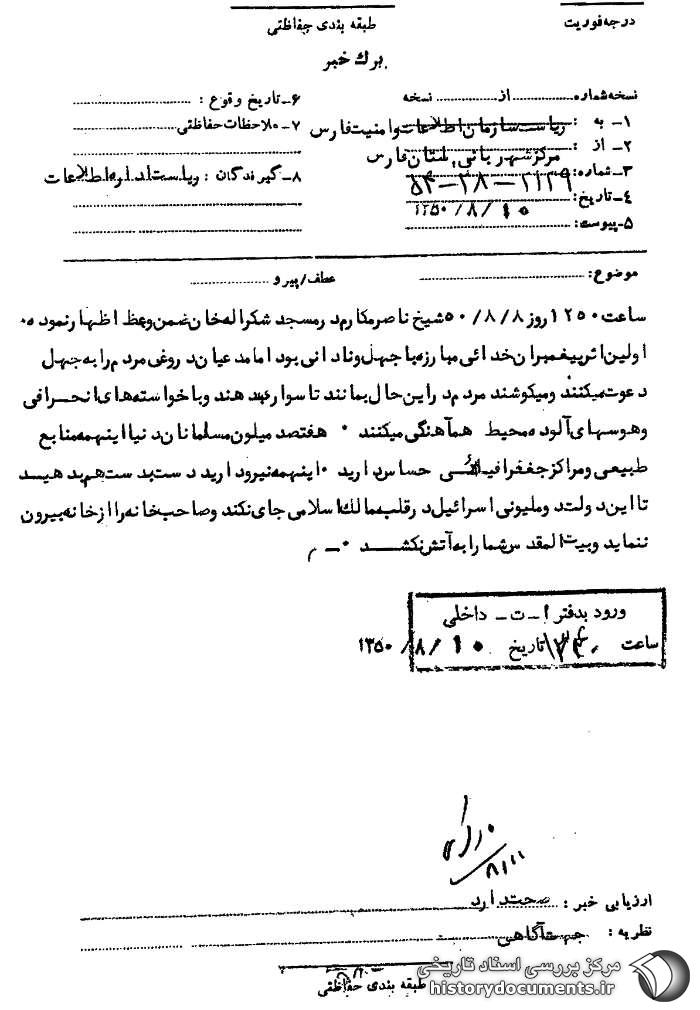 درجه فوریت
طبقه بندی حفاظتی
برگ خبر
نسخه شماره ........ از ........ نسخه
۱ـ به : ریاست سازمان اطلاعات و امنیت فارس
۲ـ از : مرکز شهربانی استان فارس
۳ـ شماره: ۲۱۲۹ – ۳۸ – ۵۴
۴ـ تاریخ: ۱۰ /۸/ ۱۳۵۰
۵ـ پیوست:
۶ـ تاریخ وقوع :
۷ـ ملاحظات حفاظتی
۸ـ گیرندگان : ریاست اداره اطلاعات
موضوع: عطف/پیرو
ساعت ۱۲۵۰ روز ۵۰/۸/۸ شیخ ناصر مکارم در مسجد شکراله خان ضمن وعظ اظهار نموده ۰
اولین اثر پیغمبران خدائی مبارزه با جهل و نادانی بود اما مدعیان دروغی مردم را به جهل
دعوت میکنند و میکوشند مردم در این حال بمانند تا سواری دهند و با خواسته های انحرافی
و هوسهای آلوده محیط هم آهنگی میکنند ۰ هفتصد میلون مسلمانان دنیا اینهمه منابع
طبیعی و مراکز جغرافیائی حساس دارید ۰ اینهمه نیرو دارید دست بدست هم بدهیـد
تا این دولت دو ملیونی اسرائیل در قلب ممالک اسلامی جای نکند و صاحب خانه را از خانه بیرون
ننماید و بیت المقدس شما را به آتش نکشـــد ۰ ــ م
ورود بدفتر ا ـ ت ـ داخلی
ساعت تاریخ ۱۰ /۸/ ۱۳۵۰
۸/۱۱
ارزیابی خبر : صحت دارد
نظریه : جهت آگاهی
طبقه بندی حفاظتی
مرکز بررسی اسناد تاریخی
historydocuments.ir